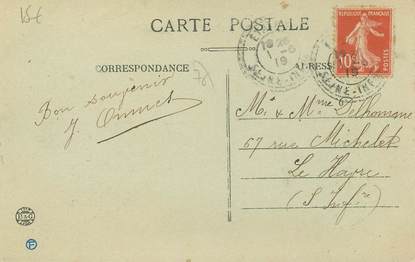 15€
CARTE POSTALE
REPUBLIQUE FRANÇAISE
10
POSTES
19
SEINE-INF
19
SEINE-INF
CORRESPONDANCE
ADRESSE
76
Bon souvenir
M. & Mme Delhomme
67 rue Michelet
Le Havre
(S. Infre)